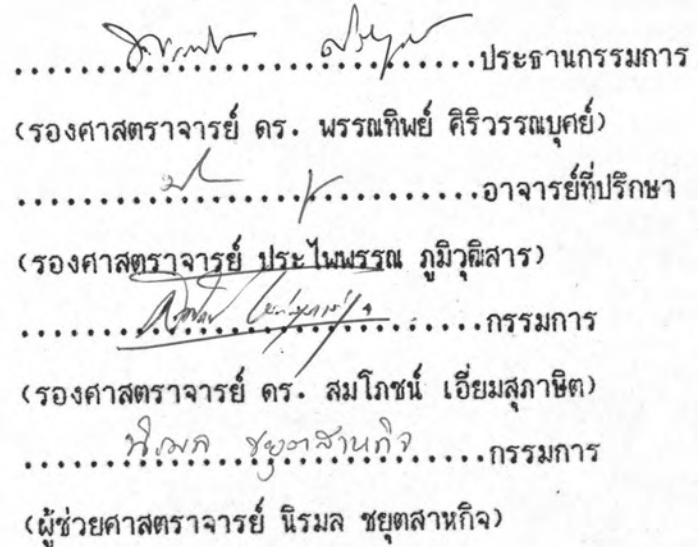 ..............................ประธานกรรมการ
(รองศาสตราจารย์ ดร. พรรณทิพย์ ศิริวรรณบุศย์)
..............................อาจารย์ที่ปรึกษา
(รองศาสตราจารย์ ประไพพรรณ ภูมิวุฒิสาร)
..............................กรรมการ
(รองศาสตราจารย์ ดร. สมโภชน์ เอี่ยมสุภาษิต)
นิรมล ชยุตสาหกิจ ..............................กรรมการ
(ผู้ช่วยศาสตราจารย์ นิรมล ชยุตสาหกิจ)